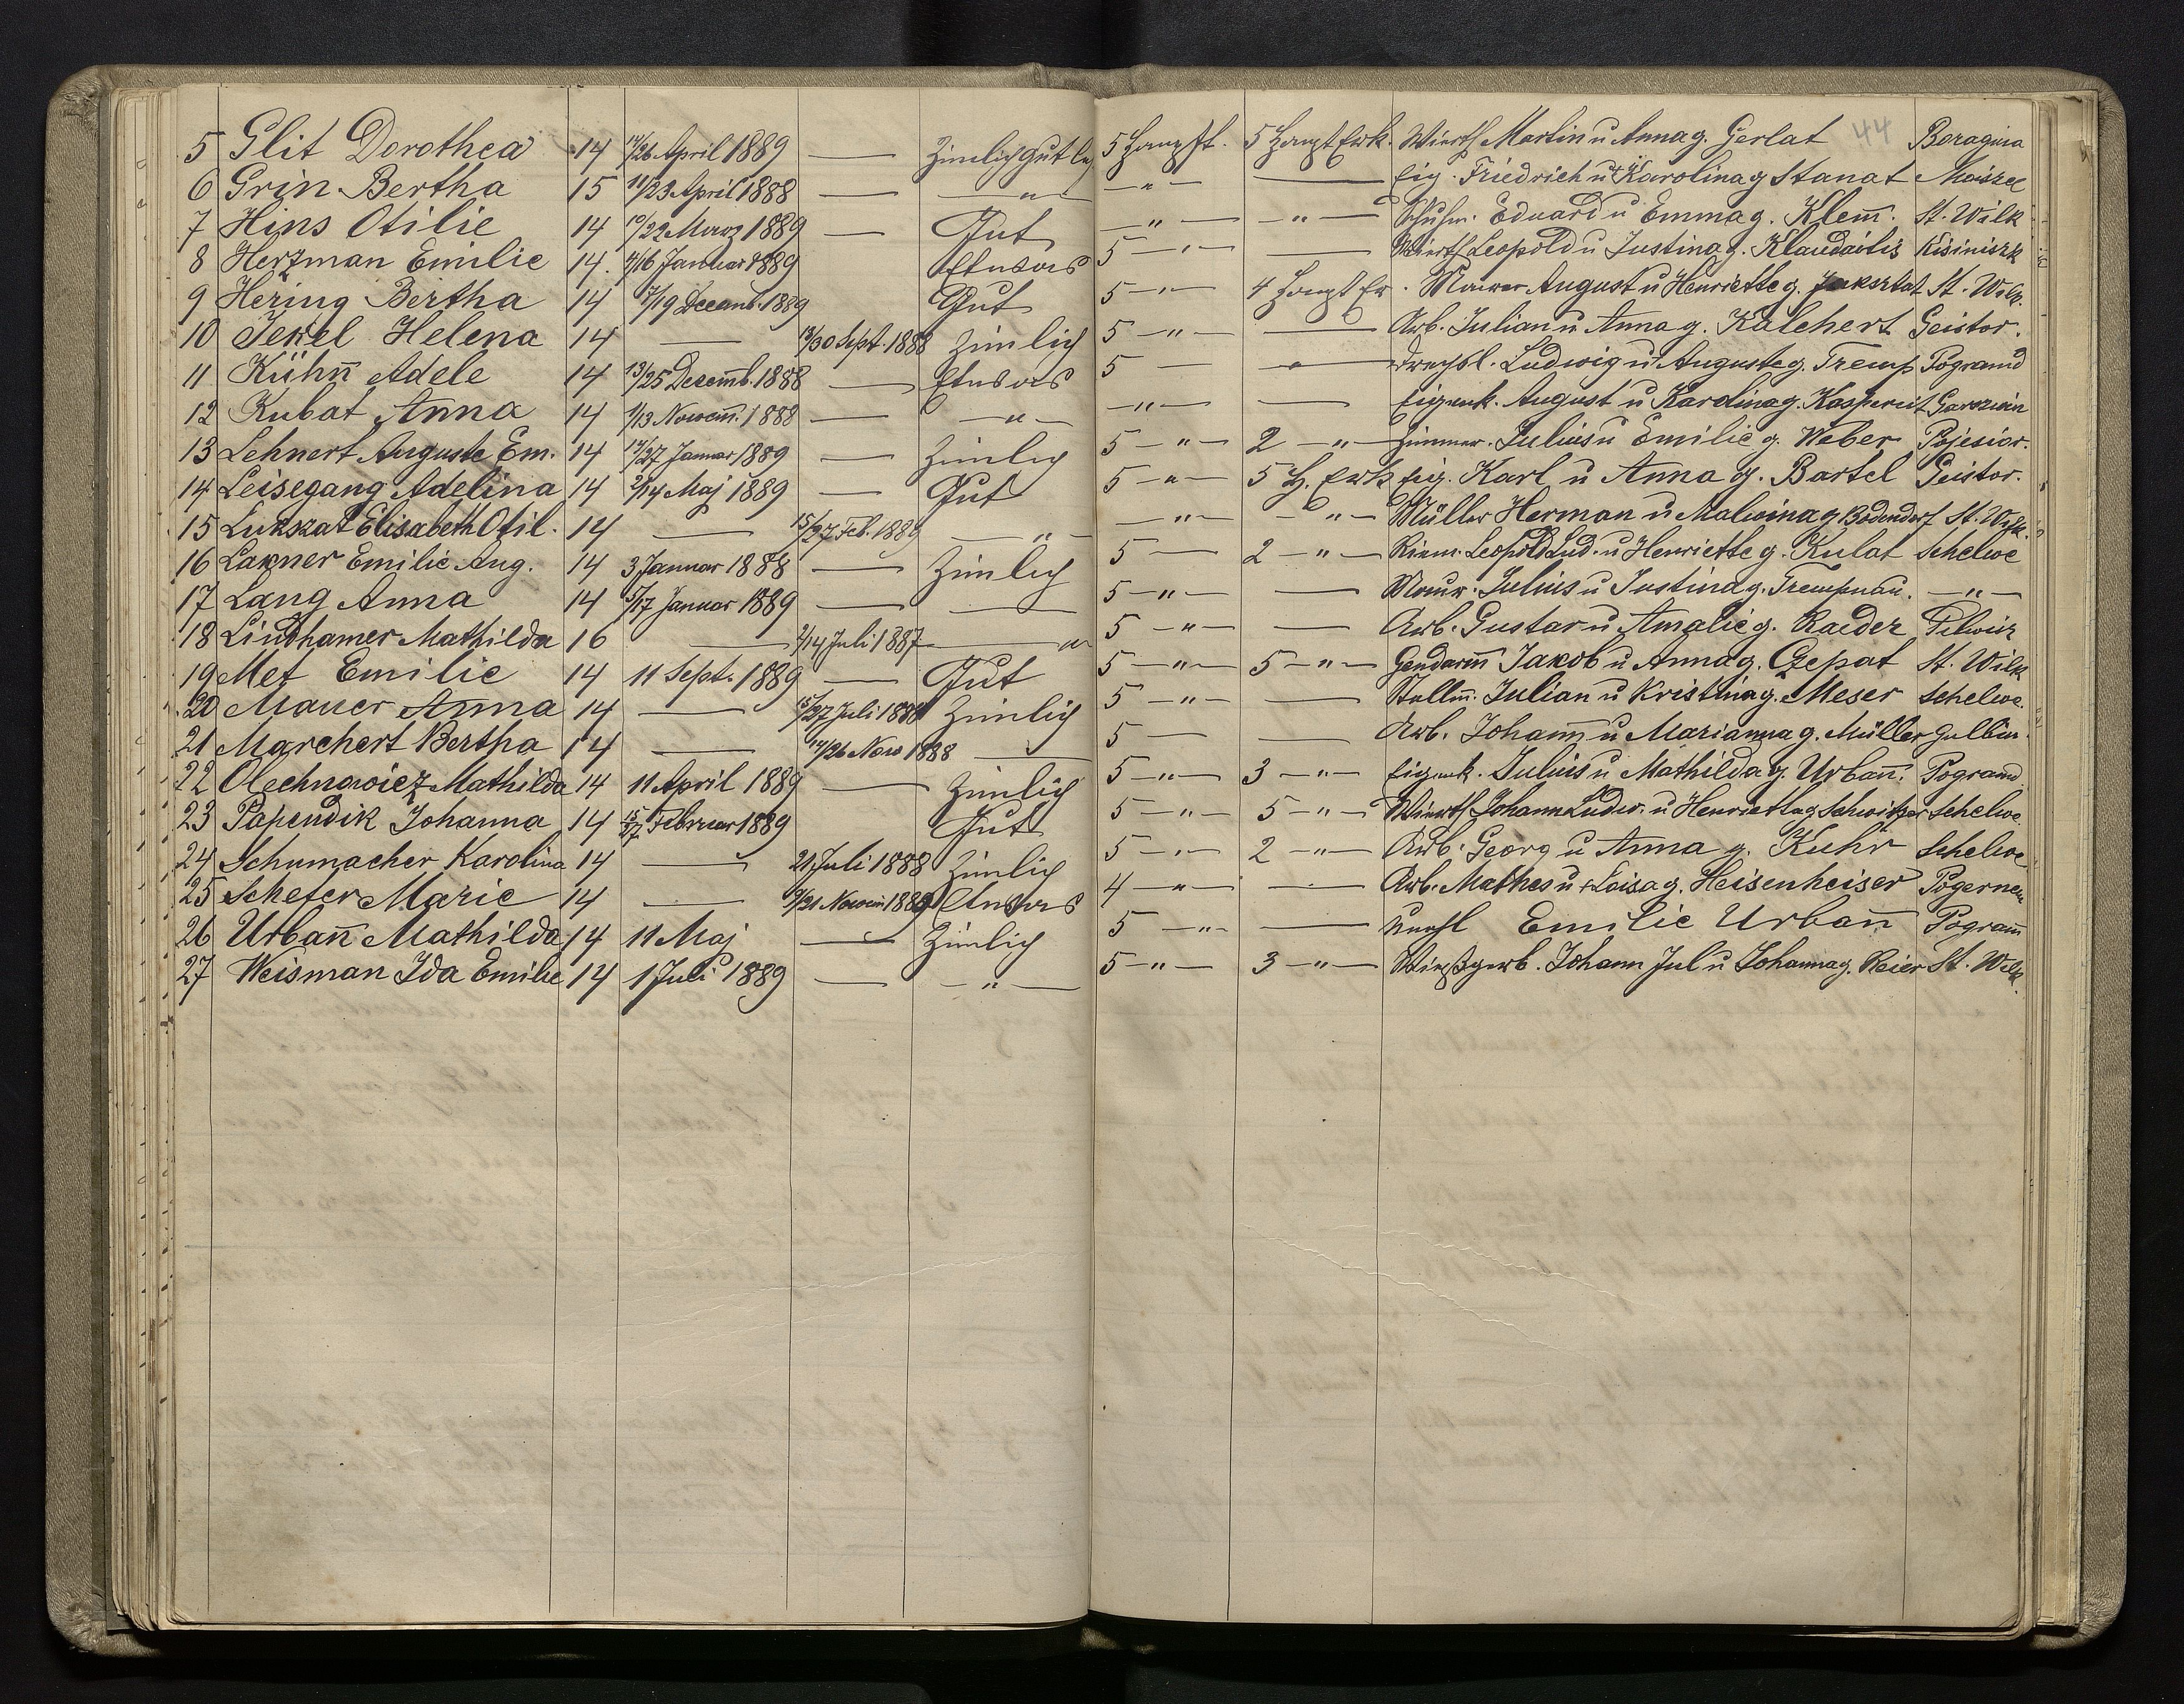 44
5 Glit Dorothea 14 14/26 April 1889 — Zimlich gut 5 Haupst. 5 Haupt Erk. Wirth Martin u Anna g. Gerlat
6 Grin Bertha 15 11/23 April 1888 — " — " — — Eig. Friedrich u Karolina g Stanat
7 Hins Otilie 14 10/22 1889 — Gut — " — — " — Schuhm. Eduard u Emma g. Klem̄. St. Wilk
8 Herzman Emilie 14. 4/16 Januar 1889 Etwas 5 — " — — Wirth Leopold u Justina g. Klaudaitis Kisiniszk
9 Hering Bertha 14 7/19 1889 Gut 5 — " — 4 Haupt Er. Maurer August u Henriette g. Juksztat St. Wilk.
10 Jekel Helena 14 — 18/30 Sept. 1888 Zimlich 5 — " — — Arb. Julian u Anna g. Kalchert Geistor.
11 Kühn̄ Adele 14 13/25 Decem̄b. 1888 — Etwas 5 — — Ludwig u Auguste g. Tremp
12 Kubat Anna 14 1/13 Novem̄. 1888 — — " — — " — — Eigenk. August u Karolina g. Kaspereit
13 Lehnert Auguste Em. 14 Januar 1889 — Zimlich 5 — " — 2 — " — Zimmer. Julius u Emilie g. Weber Pojesior.
14 Leisegang Adelina 14 2/14 Maj 1889 — Gut 5 — " — 5 H. Erk Eig. Karl u Anna g. Bartel Geistor.
15 Lukszat Elisabeth Otil. 14 — 15/27 Feb. 1889 — " — — " — " — Müller Herman u Malwina g Bodendorf St. Wilk.
16 Lakner Emilie Aug. 14 3 Januar 1888 — Zimlich 5 — 2 — " — Riem. Leopold Lud. u Henriette g. Kubat Schelwe
17 Lang Anna 14 5/17 Januar 1889 — — 5 — " — — Maur. Julius u Justina g. Trempnau. — " —
18 Lindhamer Mathilda 16 — 2/14 Juli 1887 — " 5 — " — — Arb. Gustav u Amalie g. Raeder Pilwisz
19 Met Emilie 14 11 Sept. 1889 — Gut 5 — " — 5 — " — Gendarm̄ Jakob u Anna g. Czepat St. Wilk
20 Mauer Anna 14 — 15/27 Juli 1888 Zimlich 5 — " — — Stellm̄. Julian u Kristina g. Meser Schelwe.
21 Marchert Bertha 14 — 14/26 Now 1888 — 5 — — Arb. Johan̄ u Marianna g. Müller
22 Olechnowicz Mathilda 14 11 April 1889 — Zimlich 5 — " — 3 — " — Eigenk. Julius u Mathilda g. Urban̄.
23 Papendik Johanna 14 15/27 Februar 1889 Gut 5 — " — 5 — " — Wirth Johann Ludw. u Henrietta g Schwitzer Schelwe.
24 Schumacher Karolina 14 — 21 Juli 1888 Zimlich 5 — " — 2 — " — Arb. Georg u Anna g. Kuhr Schelwe
25 Schefer Marie 14 — 9/21 Novem 1889 Etwas 4 — " — — Arb. Mathes u Loisa g. Heisenheiser
26 Urban̄ Mathilda 14 11 Maj — Zimlich 5 — " — — Emilie Urban̄
27 Weisman Ida Emilie 14 1 Juli 1889 — — " — 5 — " — 3 — " — Johann Jul u Johanna g. Reier St. Wilk.